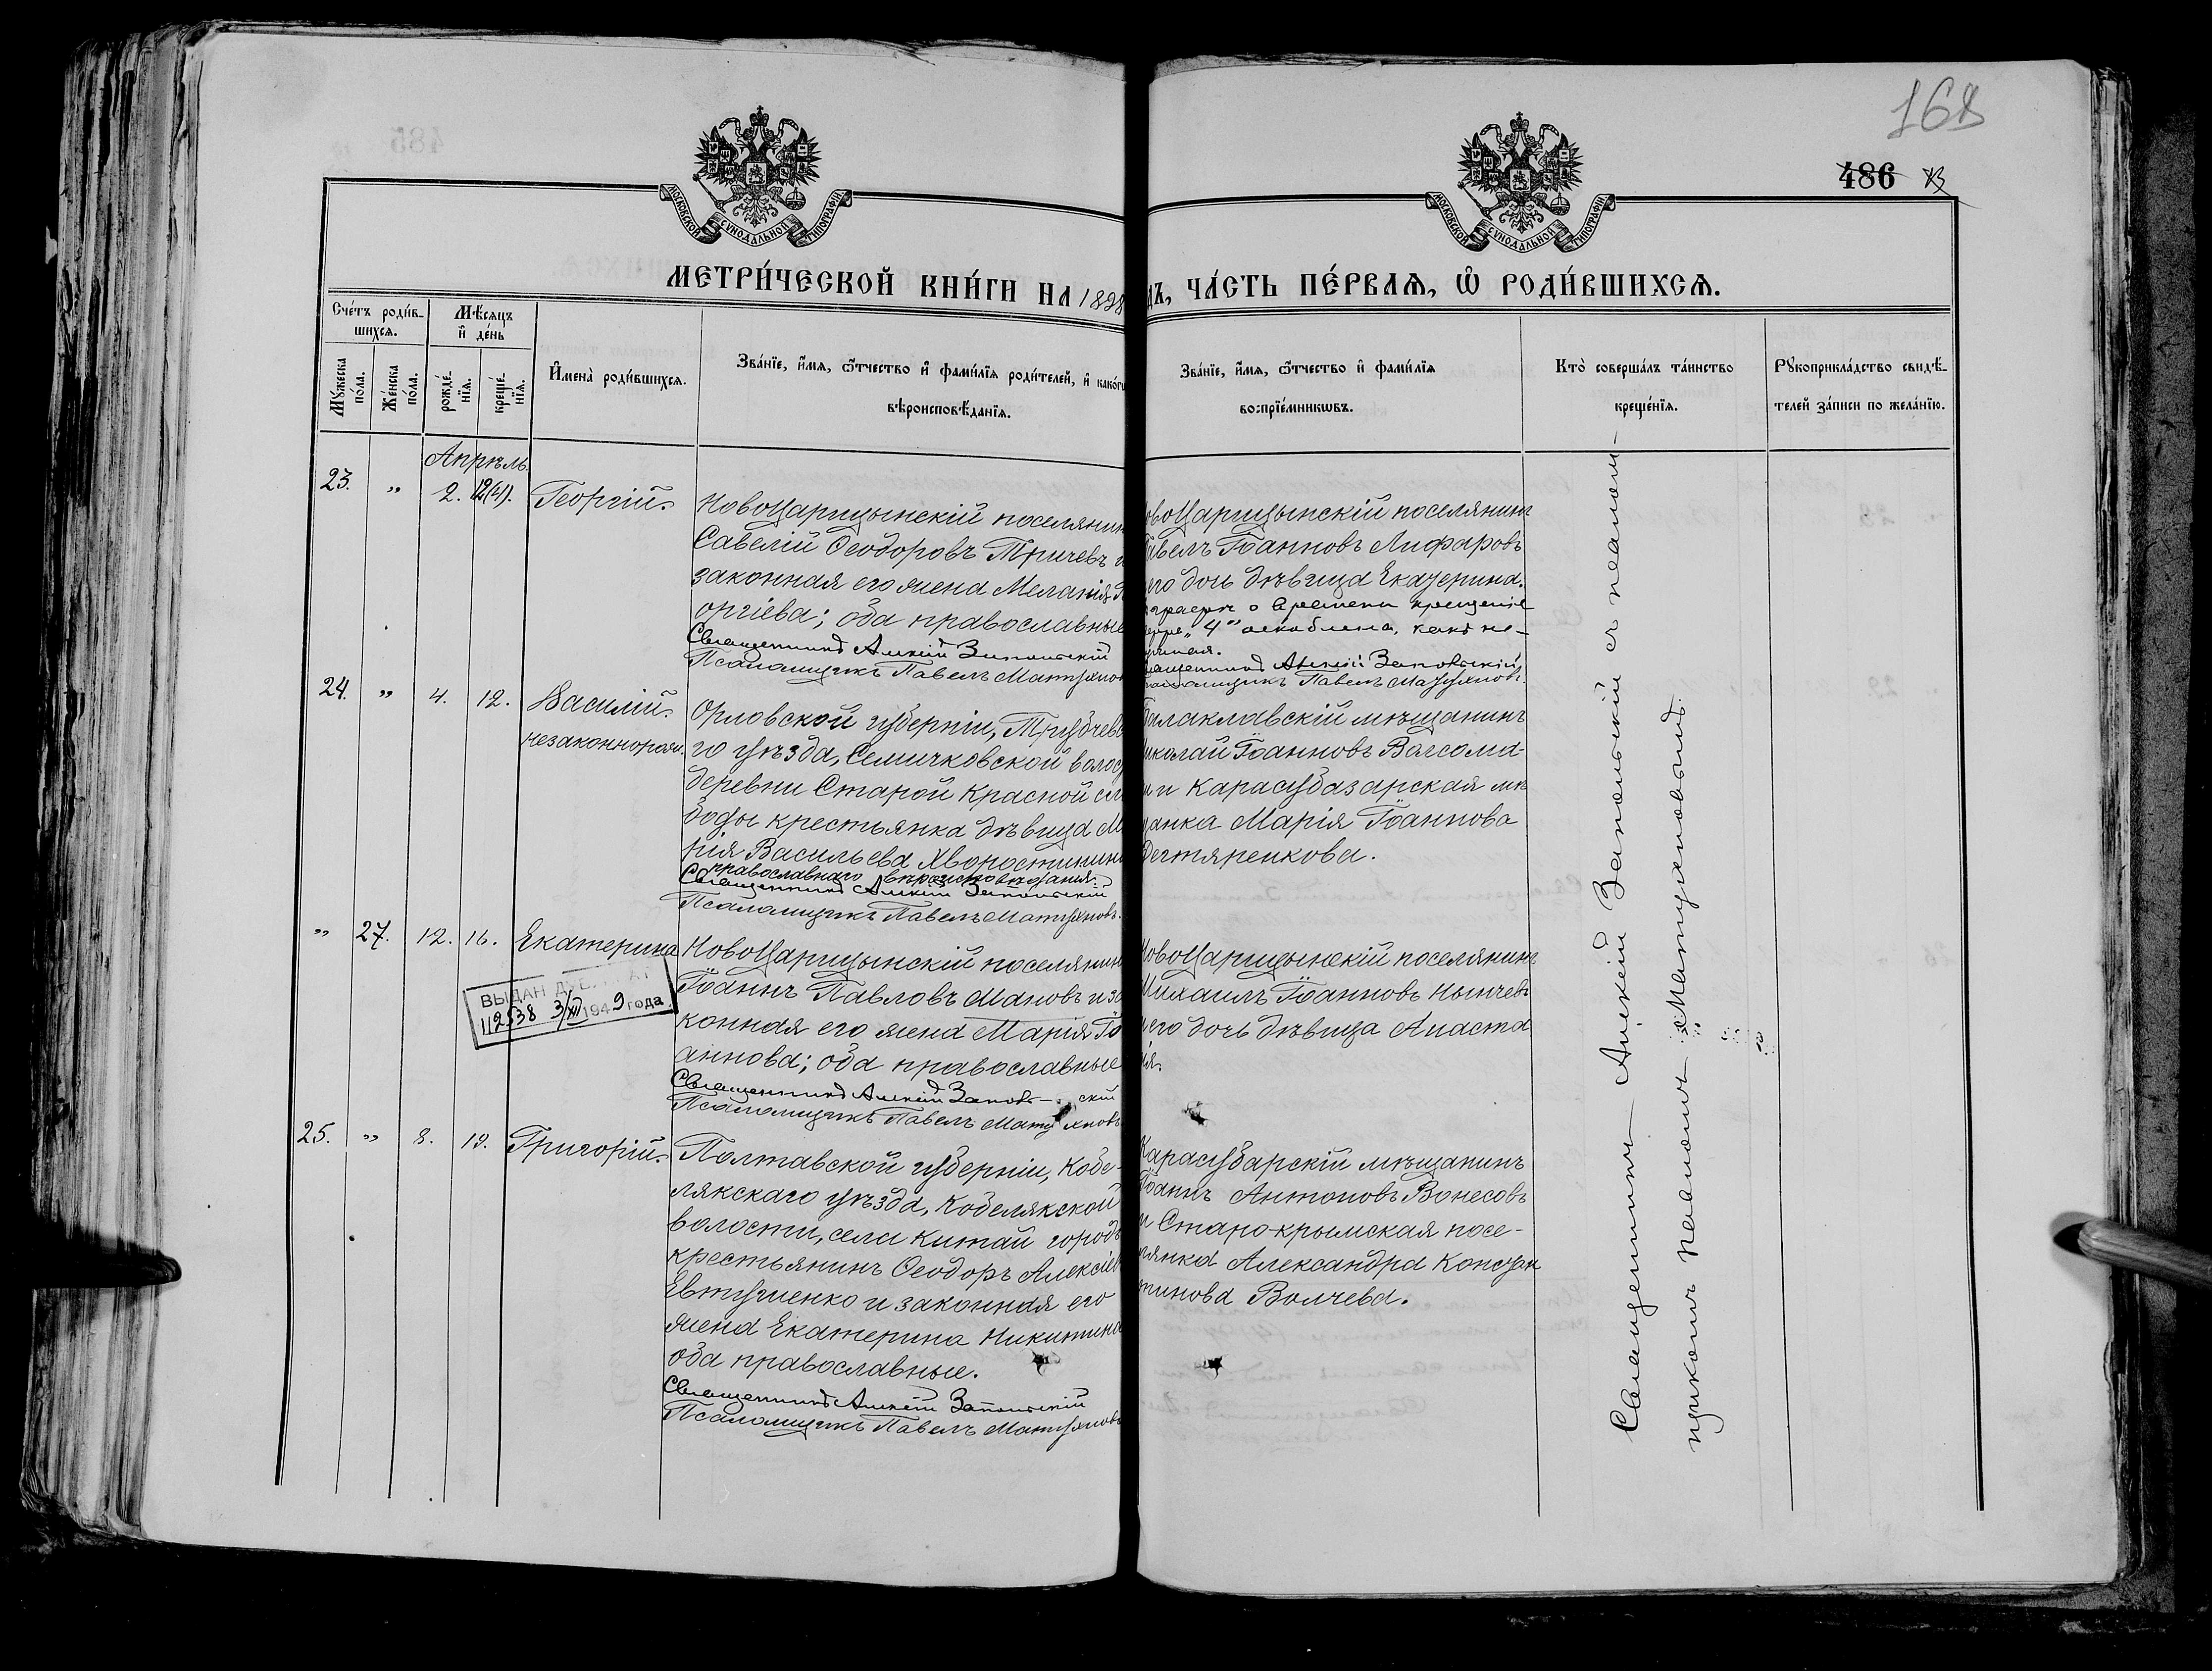 168
486
МОСКОВСКОЙ СѴНОДАЛЬНОЙ ТИПОГРАФІИ
МОСКОВСКОЙ СѴНОДАЛЬНОЙ ТИПОГРАФІИ
МЕТРИ́ЧЕСКОЙ КНИ́ГИ НА 1898
ДЪ, ЧА́СТЬ ПЕ́РВАѦ, Ѡ҆ РОДИ́ВШИХСѦ.
Сче́тъ роди́в-
шихсѧ.
Мѣ́сѧцъ
и҆ де́нь
Мꙋ́жеска
по́ла.
Же́нска
по́ла.
рожде́-
нїѧ.
креще́-
нїѧ.
И҆мена̀ роди́вшихсѧ.
Зва́нїе, и҆́мѧ, ѻ҆́тчество и҆ фами́лїѧ роди́телей, и҆ како́гѡ
вѣроисповѣ́данїѧ.
Зва́нїе, и҆́мѧ, ѻ҆́тчество и҆ фами́лїѧ
воспрїе́мникѡвъ.
Кто̀ соверша́лъ та́инство
креще́нїѧ.
Рꙋкоприкла́дство свидѣ́-
телей за́писи по жела́нїю.
Апрѣль.
23. „ 2. 12(4). Георгій.
НовоЦарицынскій поселянин
Савелій Ѳеодоровъ Тричевъ и
законная его жена Меланія Ге
оргіева; оба православные
Священникъ Алексій Запольскій
Псаломщикъ Павелъ Матухновъ
овоЦарицынскій поселянинъ
Павелъ Іоанновъ Лифаровъ
его дочь дѣвица Екатерина.
графѣ о времени крещенія
„4" оскоблена, какъ не-
Священникъ Алексій Запольскій
Псаломщикъ Павелъ Матухновъ.
24. „ 4. 12. Василій.
незаконнорожд.
Орловской губерніи, Трубчевс
го уѣзда, Семичковской волос
деревни Старой Красной сло
боды крестьянка дѣвица Ма
рія Васильева Хворостинина
православнаго вѣроисповѣданія.
Священникъ Алексій Запольскій
Псаломщикъ Павелъ Матухновъ.
Балаклавскій мѣщанинъ
Николай Іоанновъ
и и Карасубазарская мѣ
щанка Марія Іоаннова
Дегтяренкова.
„ 27. 12. 16. Екатерина
НовоЦарицынскій поселянин
Іоаннъ Павловъ Мановъ и за
конная его жена Марія Іо
аннова; оба православные
Священникъ Алексій Заполь- скій
Псаломщикъ Павелъ Матухновъ
НовоЦарицынскій поселянинъ
Михаилъ Іоанновъ Нынчевъ
и его дочь дѣвица Анаста
ія.
ВЫДАН
112538 3/XII 1949 года
25. „ 8. 19. Григорій.
Полтавской губерніи, Кобе-
лякскаго уѣзда, Кобелякской
волости, села Китай городъ
крестьянинъ Ѳеодоръ Алексіев
Евтушенко и законная его
жена Екатерина Никитина
оба православные.
Священникъ Алексій Запольскій
Псаломщикъ Павелъ Матухновъ
Карасубарскій мѣщанинъ
Іоаннъ Антоновъ Вонесовъ
и Старо-крымская посе-
лянка Александра Констан
тинова Волчева.
Священникъ Алексій Запольскій съ псалом-
щикомъ Павломъ Матухновымъ.